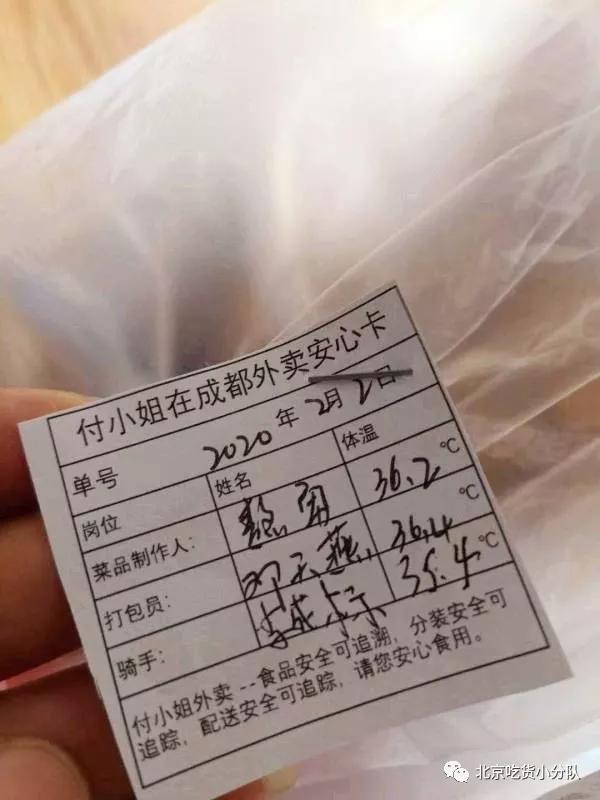 付小姐在成都外卖安心卡
2020年2月2日
单号
岗位 姓名 体温
菜品制作人: 36.2℃
打包员: 邓天燕 36.4℃
骑手: 李成标 35.4℃
付小姐外卖---食品安全可追溯,分装安全可
追踪,配送安全可追踪,请您安心食用。
北京吃货小分队